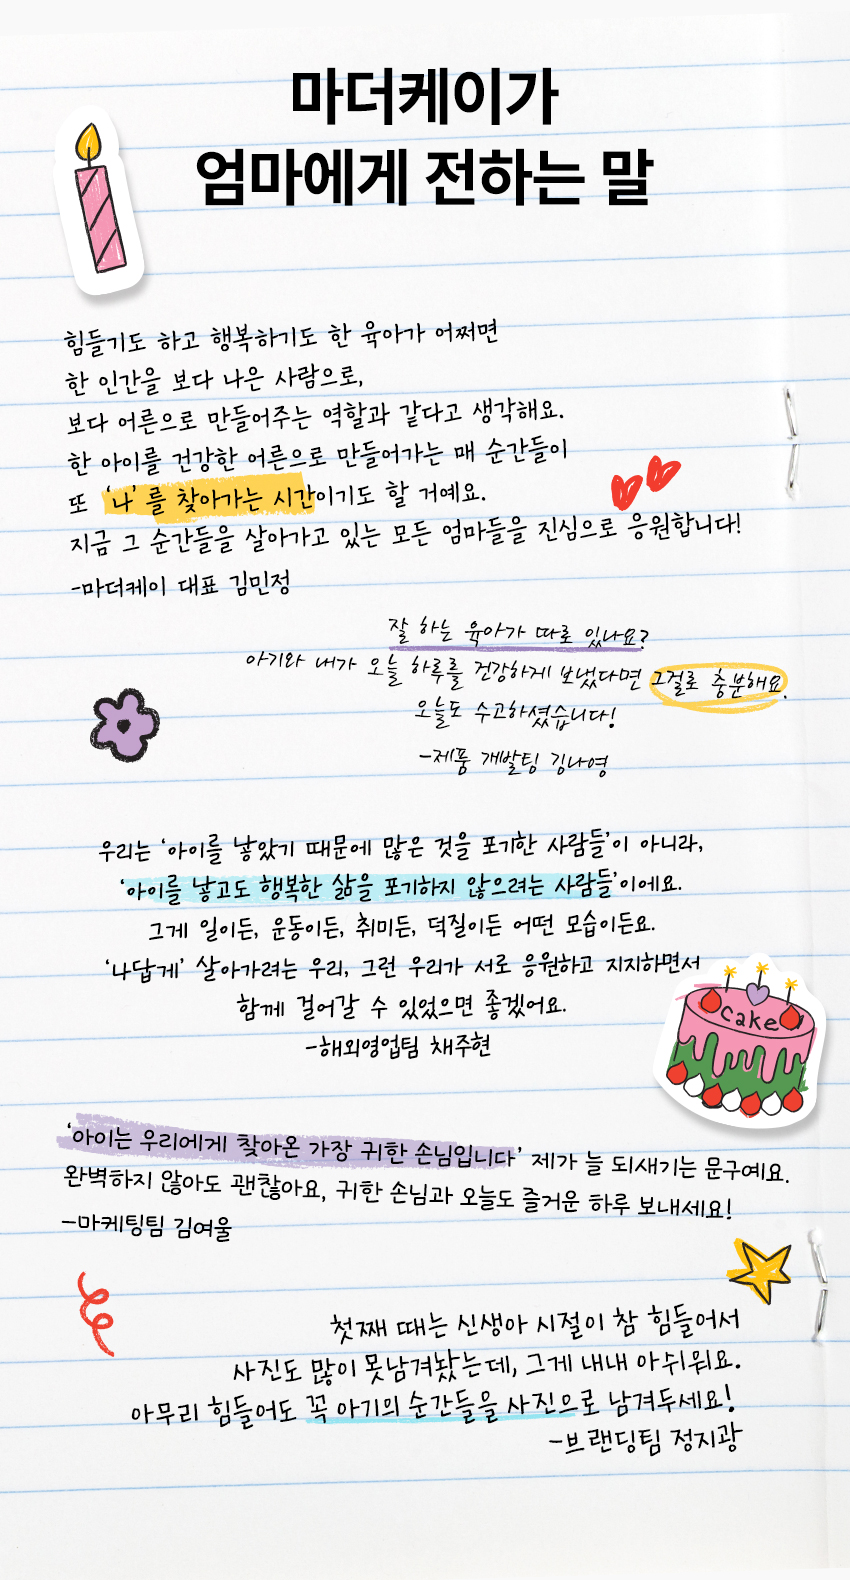 마더케이가
엄마에게 전하는 말
힘들기도 하고 행복하기도 한 육아가 어쩌면
한 인간을 보다 나은 사람으로,
보다 어른으로 만들어주는 역할과 같다고 생각해요.
한 아이를 건강한 어른으로 만들어가는 매 순간들이
또 '나'를 찾아가는 시간이기도 할 거예요.
지금 그 순간들을 살아가고 있는 모든 엄마들을 진심으로 응원합니다!
-마더케이 대표 김민정
잘 하는 육아가 따로 있나요?
아기와 내가 오늘 하루를 건강하게 보냈다면 그걸로 충분해요.
오늘도 수고하셨습니다!
-제품 개발팀 김나영
우리는 '아이를 낳았기 때문에 많은 것을 포기한 사람들'이 아니라,
'아이를 낳고도 행복한 삶을 포기하지 않으려는 사람들'이에요.
그게 일이든, 운동이든, 취미든, 덕질이든 어떤 모습이든요.
'나답게' 살아가려는 우리, 그런 우리가 서로 응원하고 지지하면서
함께 걸어갈 수 있었으면 좋겠어요.
-해외영업팀 채주현
cake
'아이는 우리에게 찾아온 가장 귀한 손님입니다' 제가 늘 되새기는 문구예요.
완벽하지 않아도 괜찮아요, 귀한 손님과 오늘도 즐거운 하루 보내세요!
-마케팅팀 김여울
첫째 때는 신생아 시절이 참 힘들어서
사진도 많이 못남겨놨는데, 그게 내내 아쉬워요.
아무리 힘들어도 꼭 아기의 순간들을 사진으로 남겨두세요!
-브랜딩팀 정지광